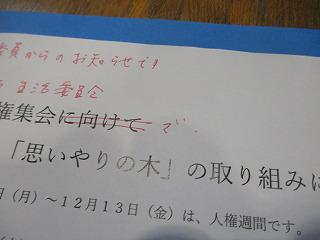 委員からのお知らせです
生活委員会
権集会に向けて で.
「思いやりの木」の取り組みに
日（月）～１２月１３日（金）は、人権週間です。